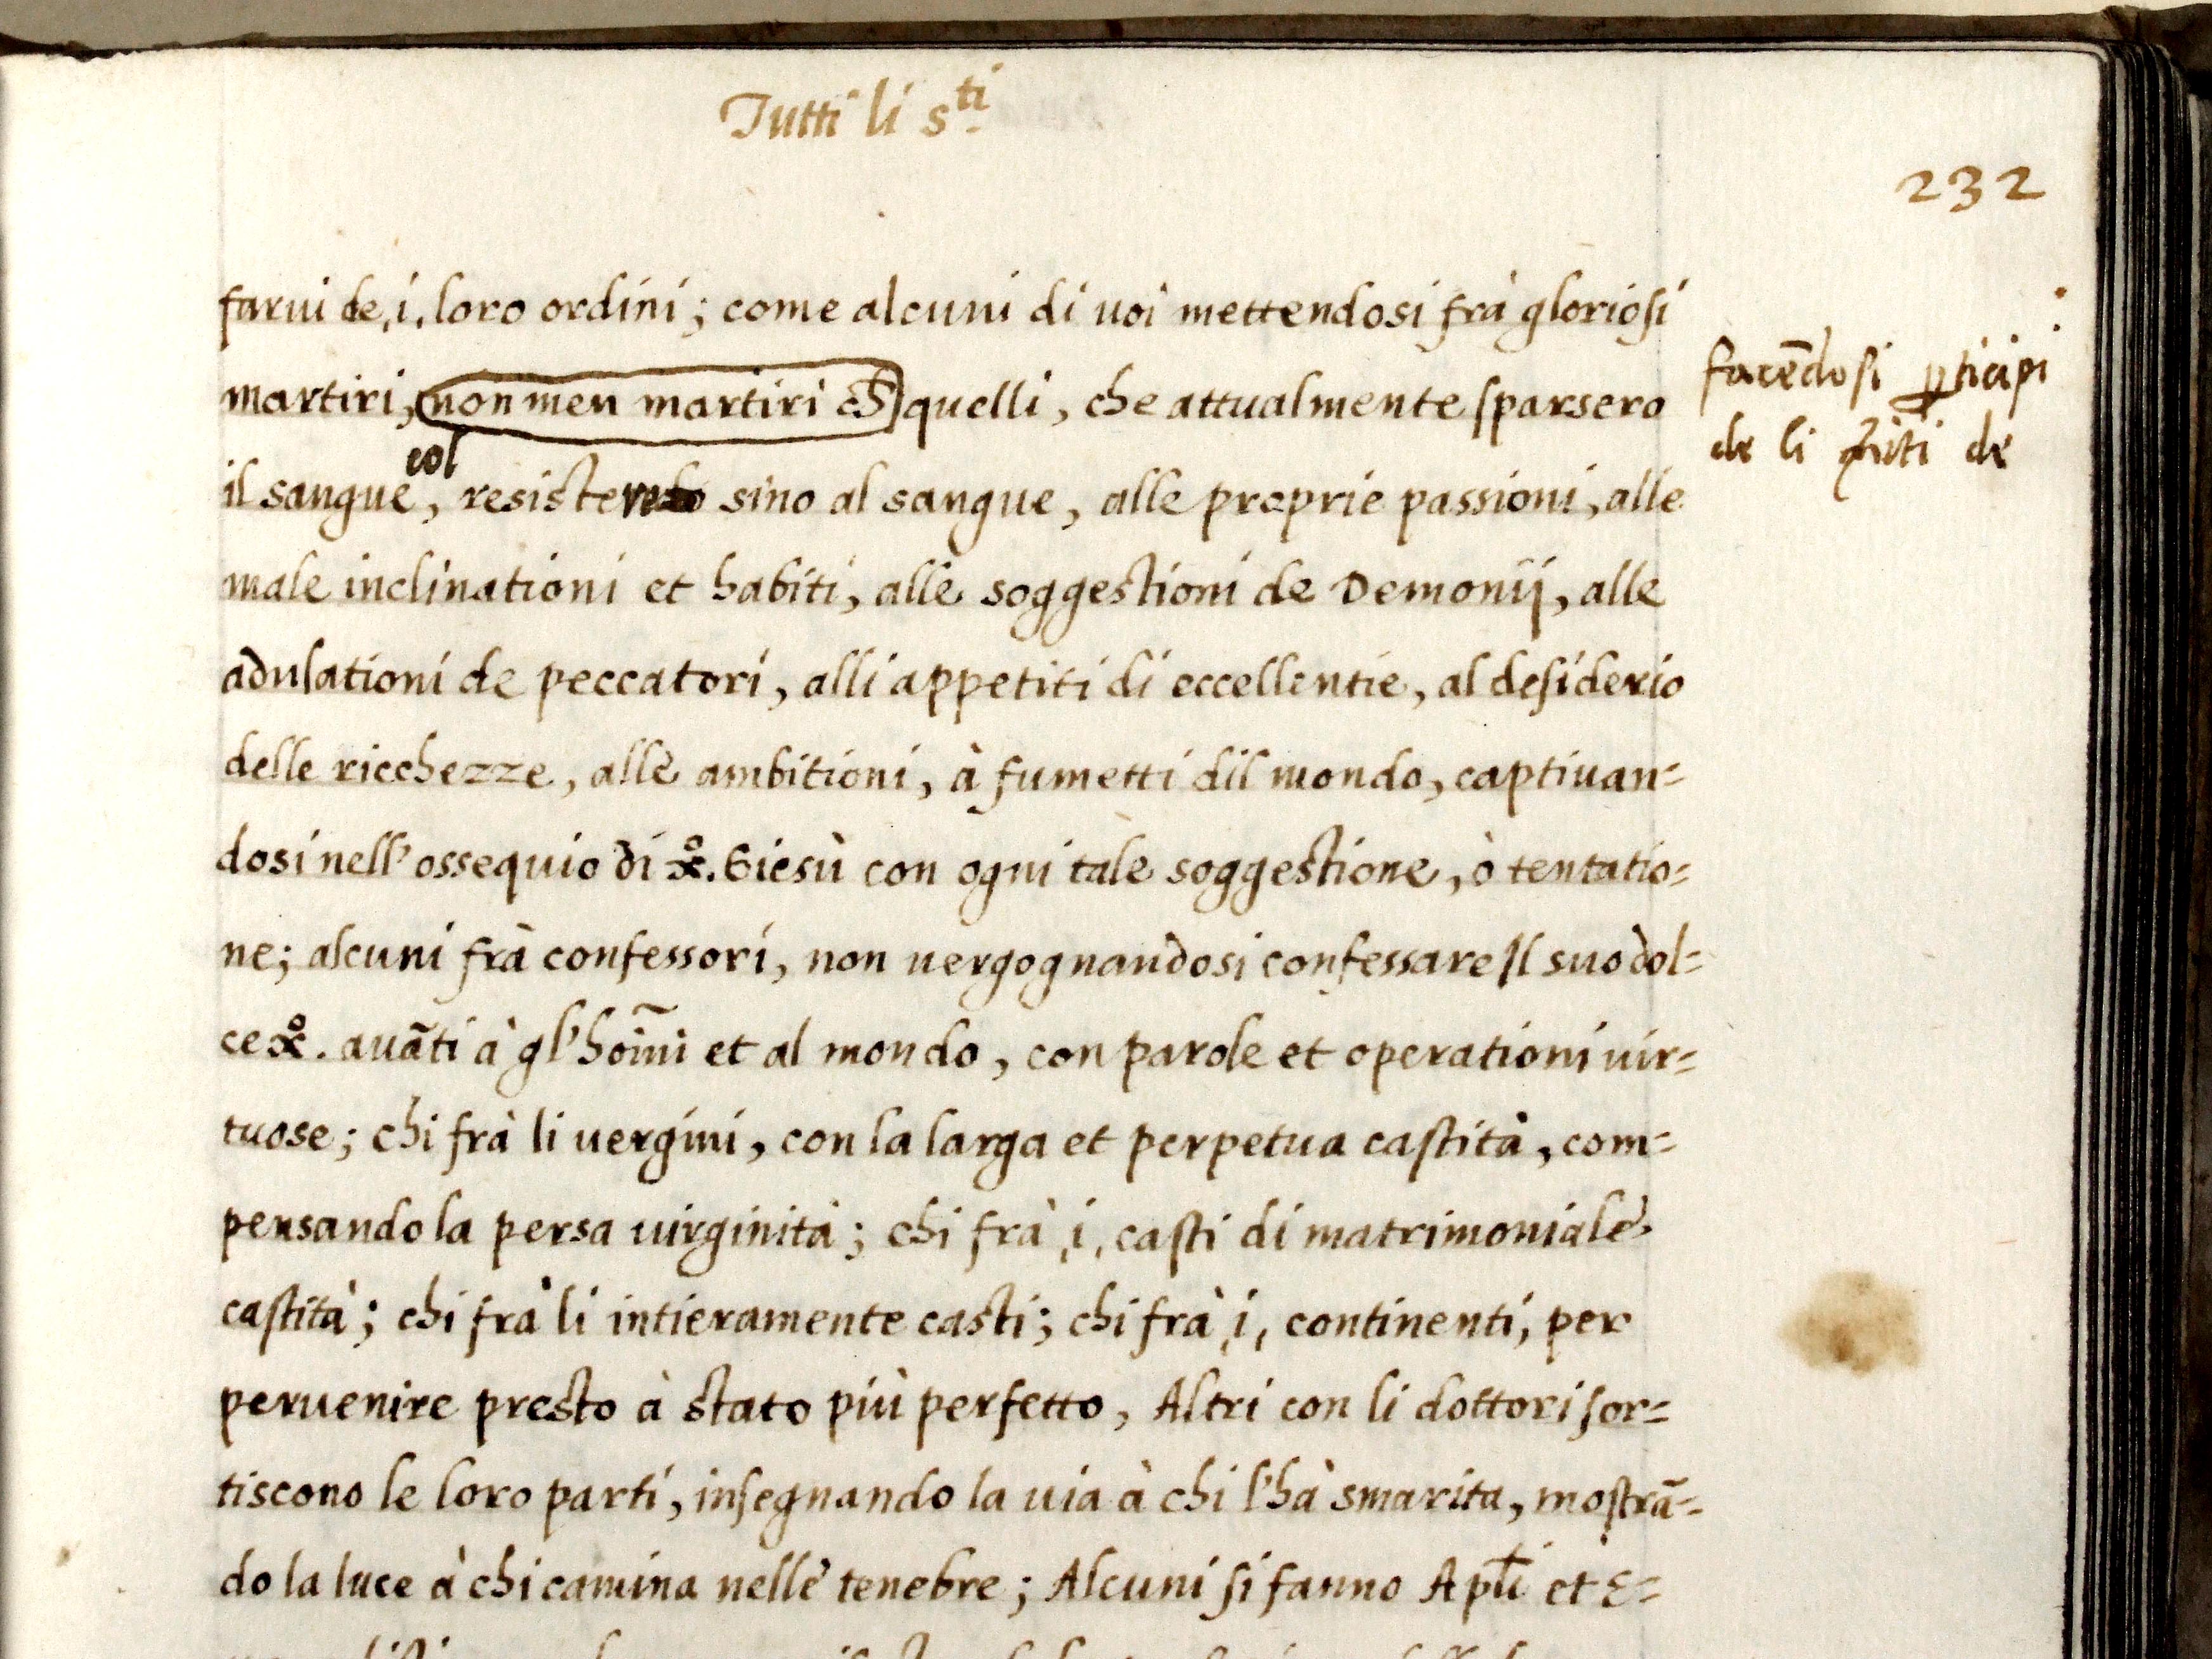 Tutti li s.ti
232
farui de, i, loro ordini; come alcuni di uoi mettendosi frà gloriosi
martiri, non men martiri ch quelli, che attualmente sparsero
facēdosi ꝑticipi
de li de
col
il sangue, resistendo sino al sangue, alle proprie passioni, alle
male inclinationi et habiti, alle soggestioni de Demonij, alle
adulationi de peccatori, alli appetiti di eccellentie, al desiderio
delle ricchezze, alle ambitioni, à fumetti dil mondo, captiuan=
dosi nell'ossequio di xº. Giesù con ogni tale soggestione, ò tentatio=
ne; alcuni frà confessori, non uergognandosi confessare Il suo dol=
ce xº. auāti à gl'hoĩni et al mondo, con parole et operationi uir=
tuose; chi frà li uergini, con la larga et perpetua castità, com=
pensando la persa uirginità; chi frà, i, casti di matrimoniale
castità; chi frà li intieramente casti; chi frà, i, continenti, per
peruenire presto à stato più perfetto, Altri con li dottori sor=
tiscono le loro parti, insegnando la uia à chi l'hà smarita, mostrā=
do la luce à chi camina nelle tenebre; Alcuni si fanno Apli et E=